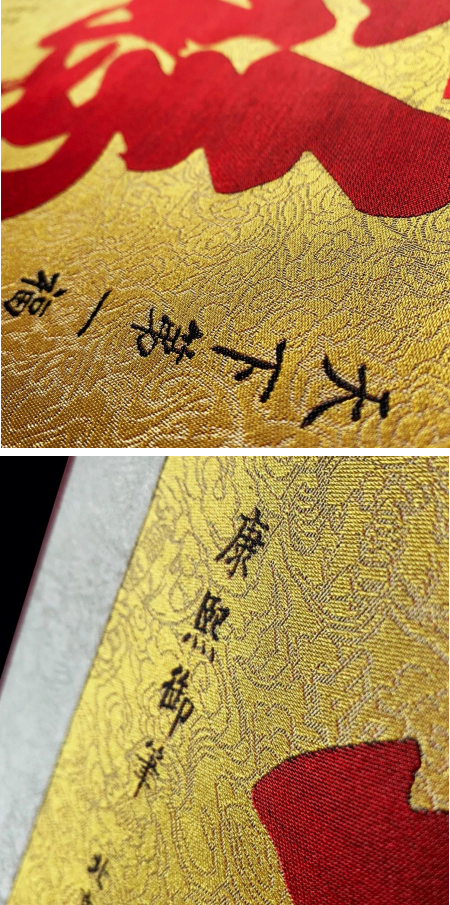 天下第一福
康熙御筆
北